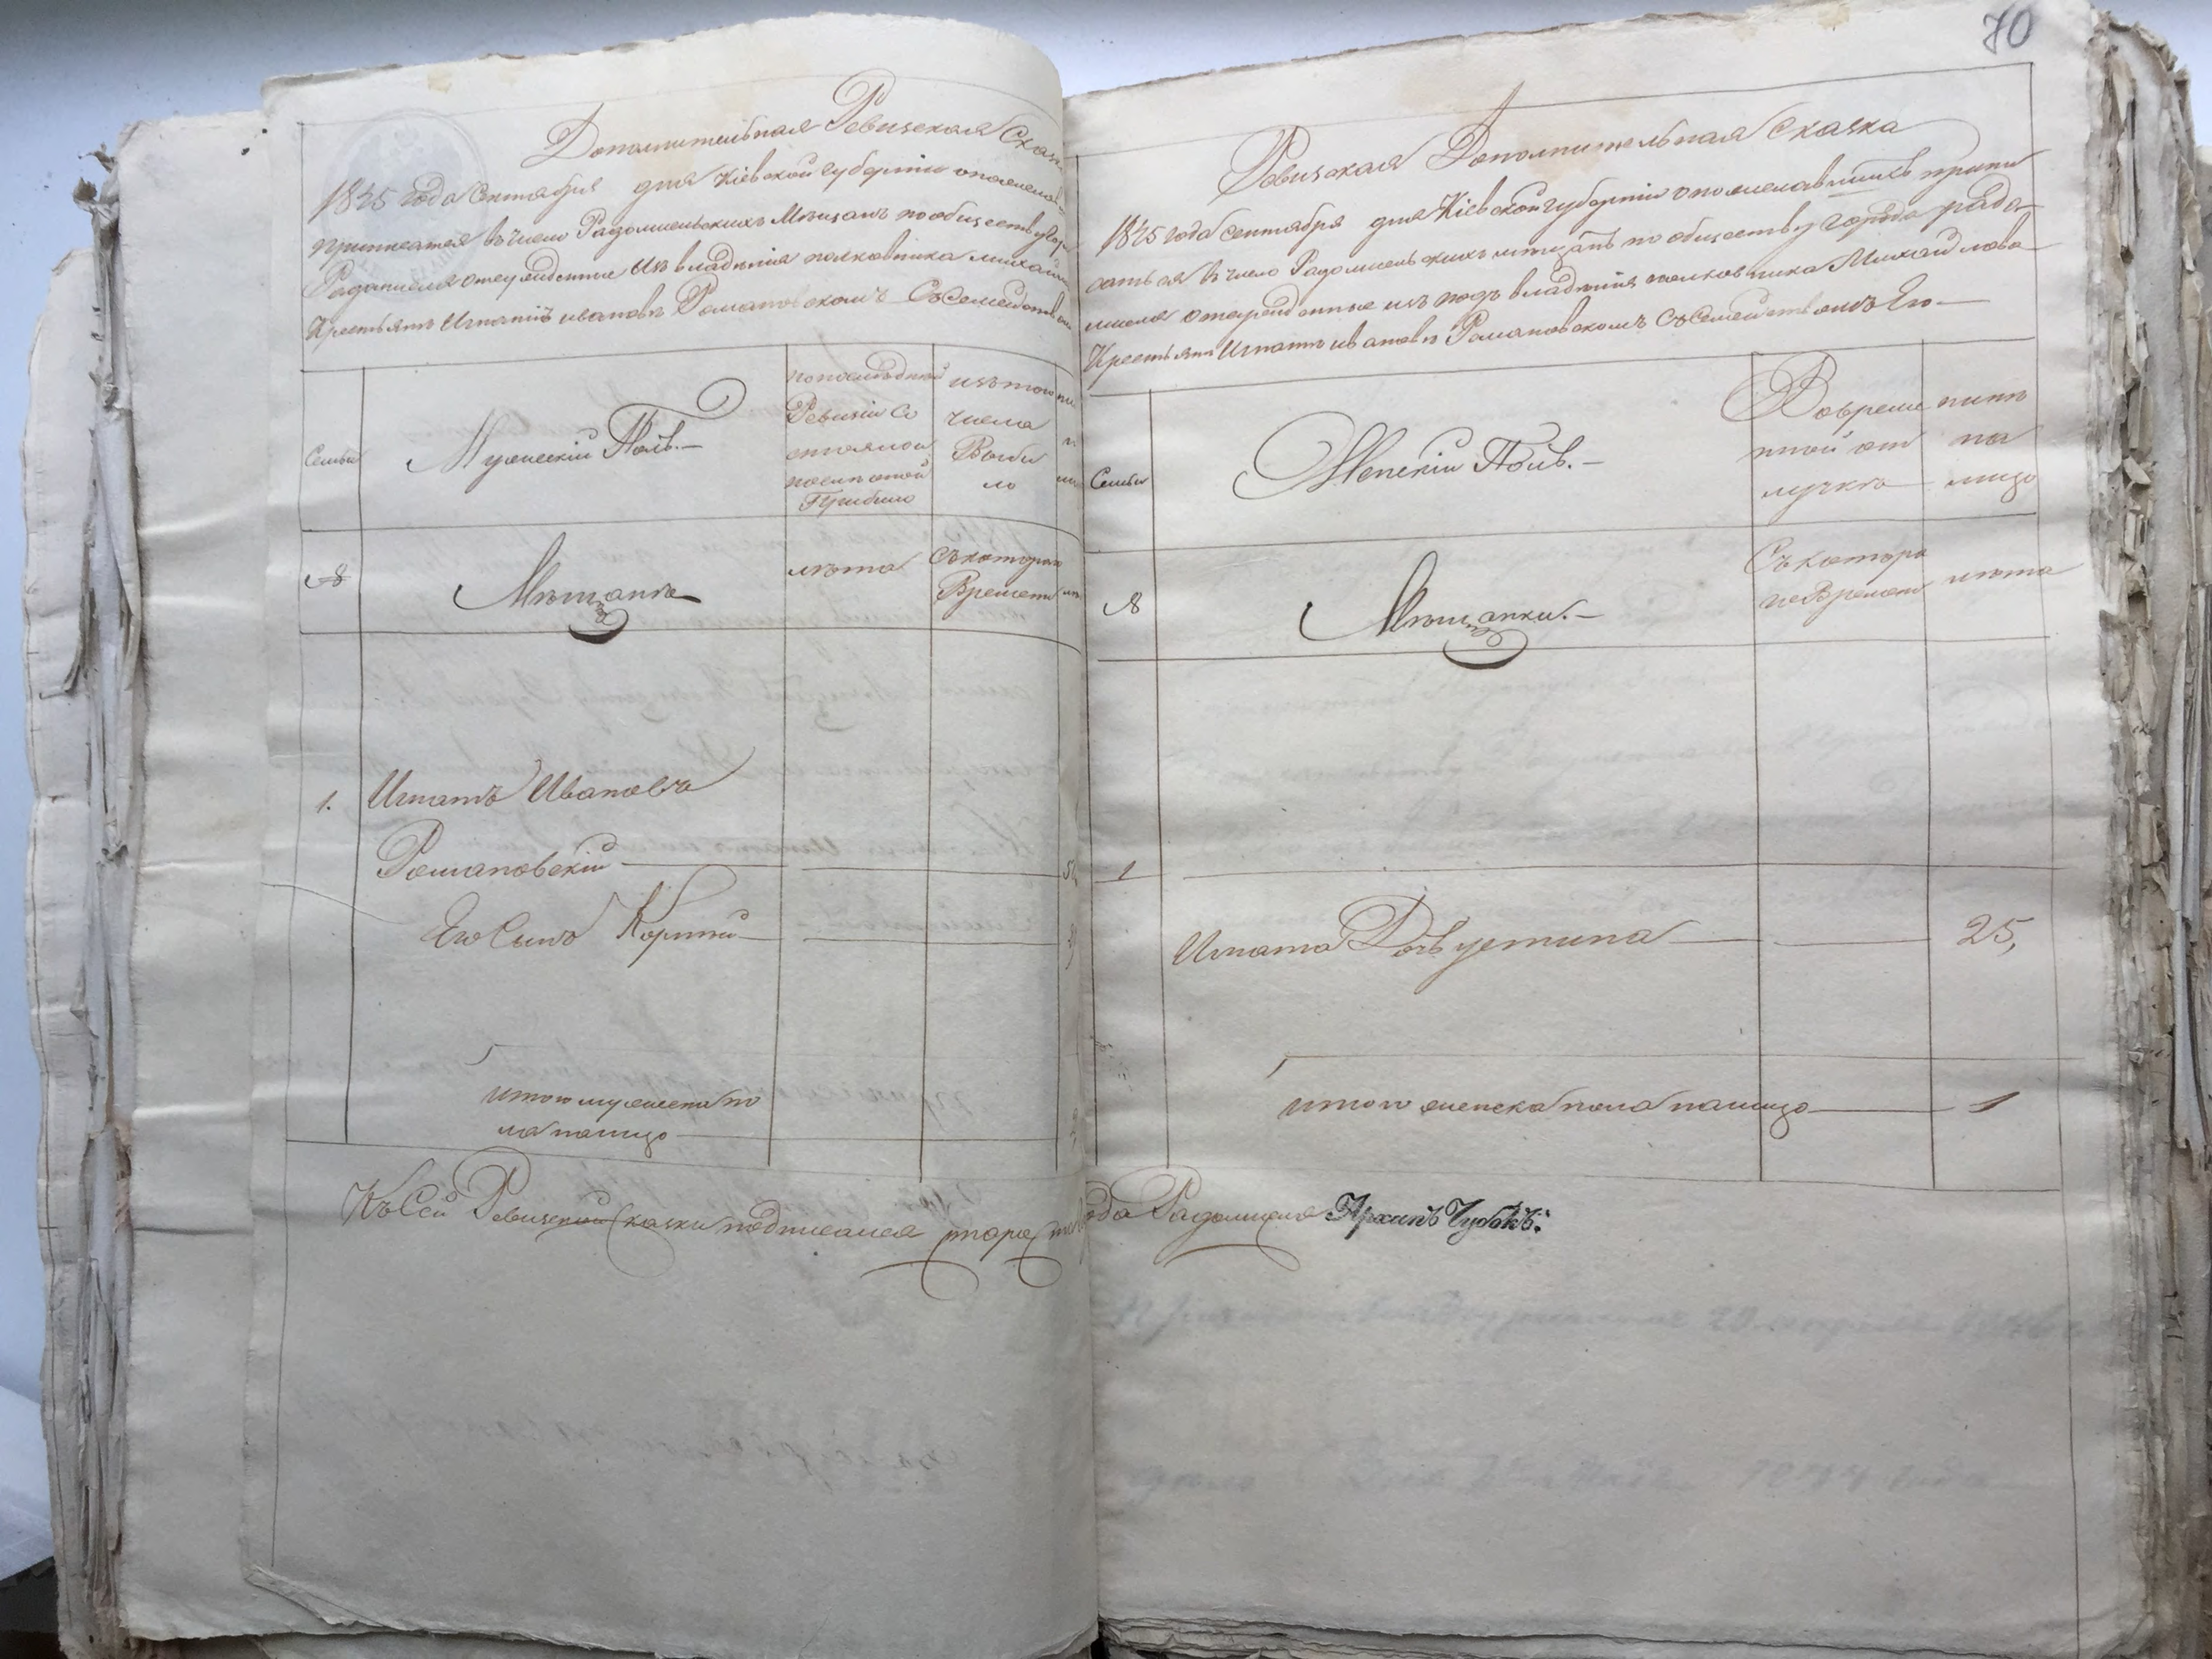 Дополнительная Ревизская Сказ
1845 года Сентября дня Кіевской губерніи о пожелав
приписатся въ число Радомисльскихъ Мѣщанъ по обществу гор
Радомисля отсужденные Изъ владѣнія полковника Михай
Крестьянъ Игнатій ивановъ Романовскомъ Съ Семейством
Семьи
Мужескій Полъ.—
по последней
Ревизіи Со
стояло и
после оной
Прибыло
изъ того
числа
Выбы
ло
№
Мѣщанѣ
лѣта
Съ котораго
Времени
1. Игнатъ Ивановъ
Романовскій
Его Сынъ Корній
итого мужеска по
ла налицо
Къ Сей Ревизской Сказки подписался Старо
70
Ревизская Дополнительная Сказка
1845 года Сентября дня Кіевской губерніи о пожелавшихъ припи
саться въ число Радомисльскихъ мѣщанъ по обществу города радо
мисля отсужденные изъ подъ владѣнія полковника Михайлова
Крестьянъ Игнатъ ивановъ Романовскомъ Съ Семействомъ Его—
Семьи
Женскій Полъ.—
Во време
нной от
лучке
нинѣ
на
лицо
№
Мѣщанки.—
Съ которо
го Времени
лѣта
1
Игната Дочь устина 25,
итого женска пола налицо 1
ода Радомисля Архипъ Чубокъ.